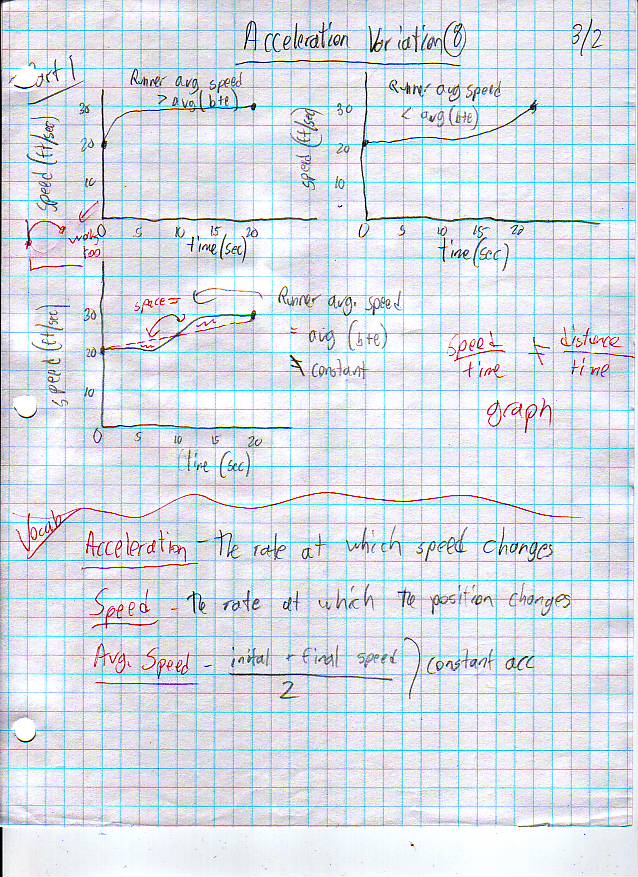 Acceleration Variation 8
3/2
Part 1
Runner avg. speed
> avg (b+e)
speed (ft/sec)
30
20
10
0 5 10 15 20
time (sec)
Runner avg speed
< avg (b+e)
speed (ft/sec)
30
20
10
0 5 10 15 20
time (sec)
works
too
space =
Runner avg. speed
= avg (b+e)
≠ constant
speed (ft/sec)
30
20
10
0 5 10 15 20
time (sec)
speed/time ≠ distance/time
graph
Vocab
Acceleration - The rate at which speed changes
Speed - The rate at which the position changes
Avg. Speed - inital + final speed ) constant acc
2